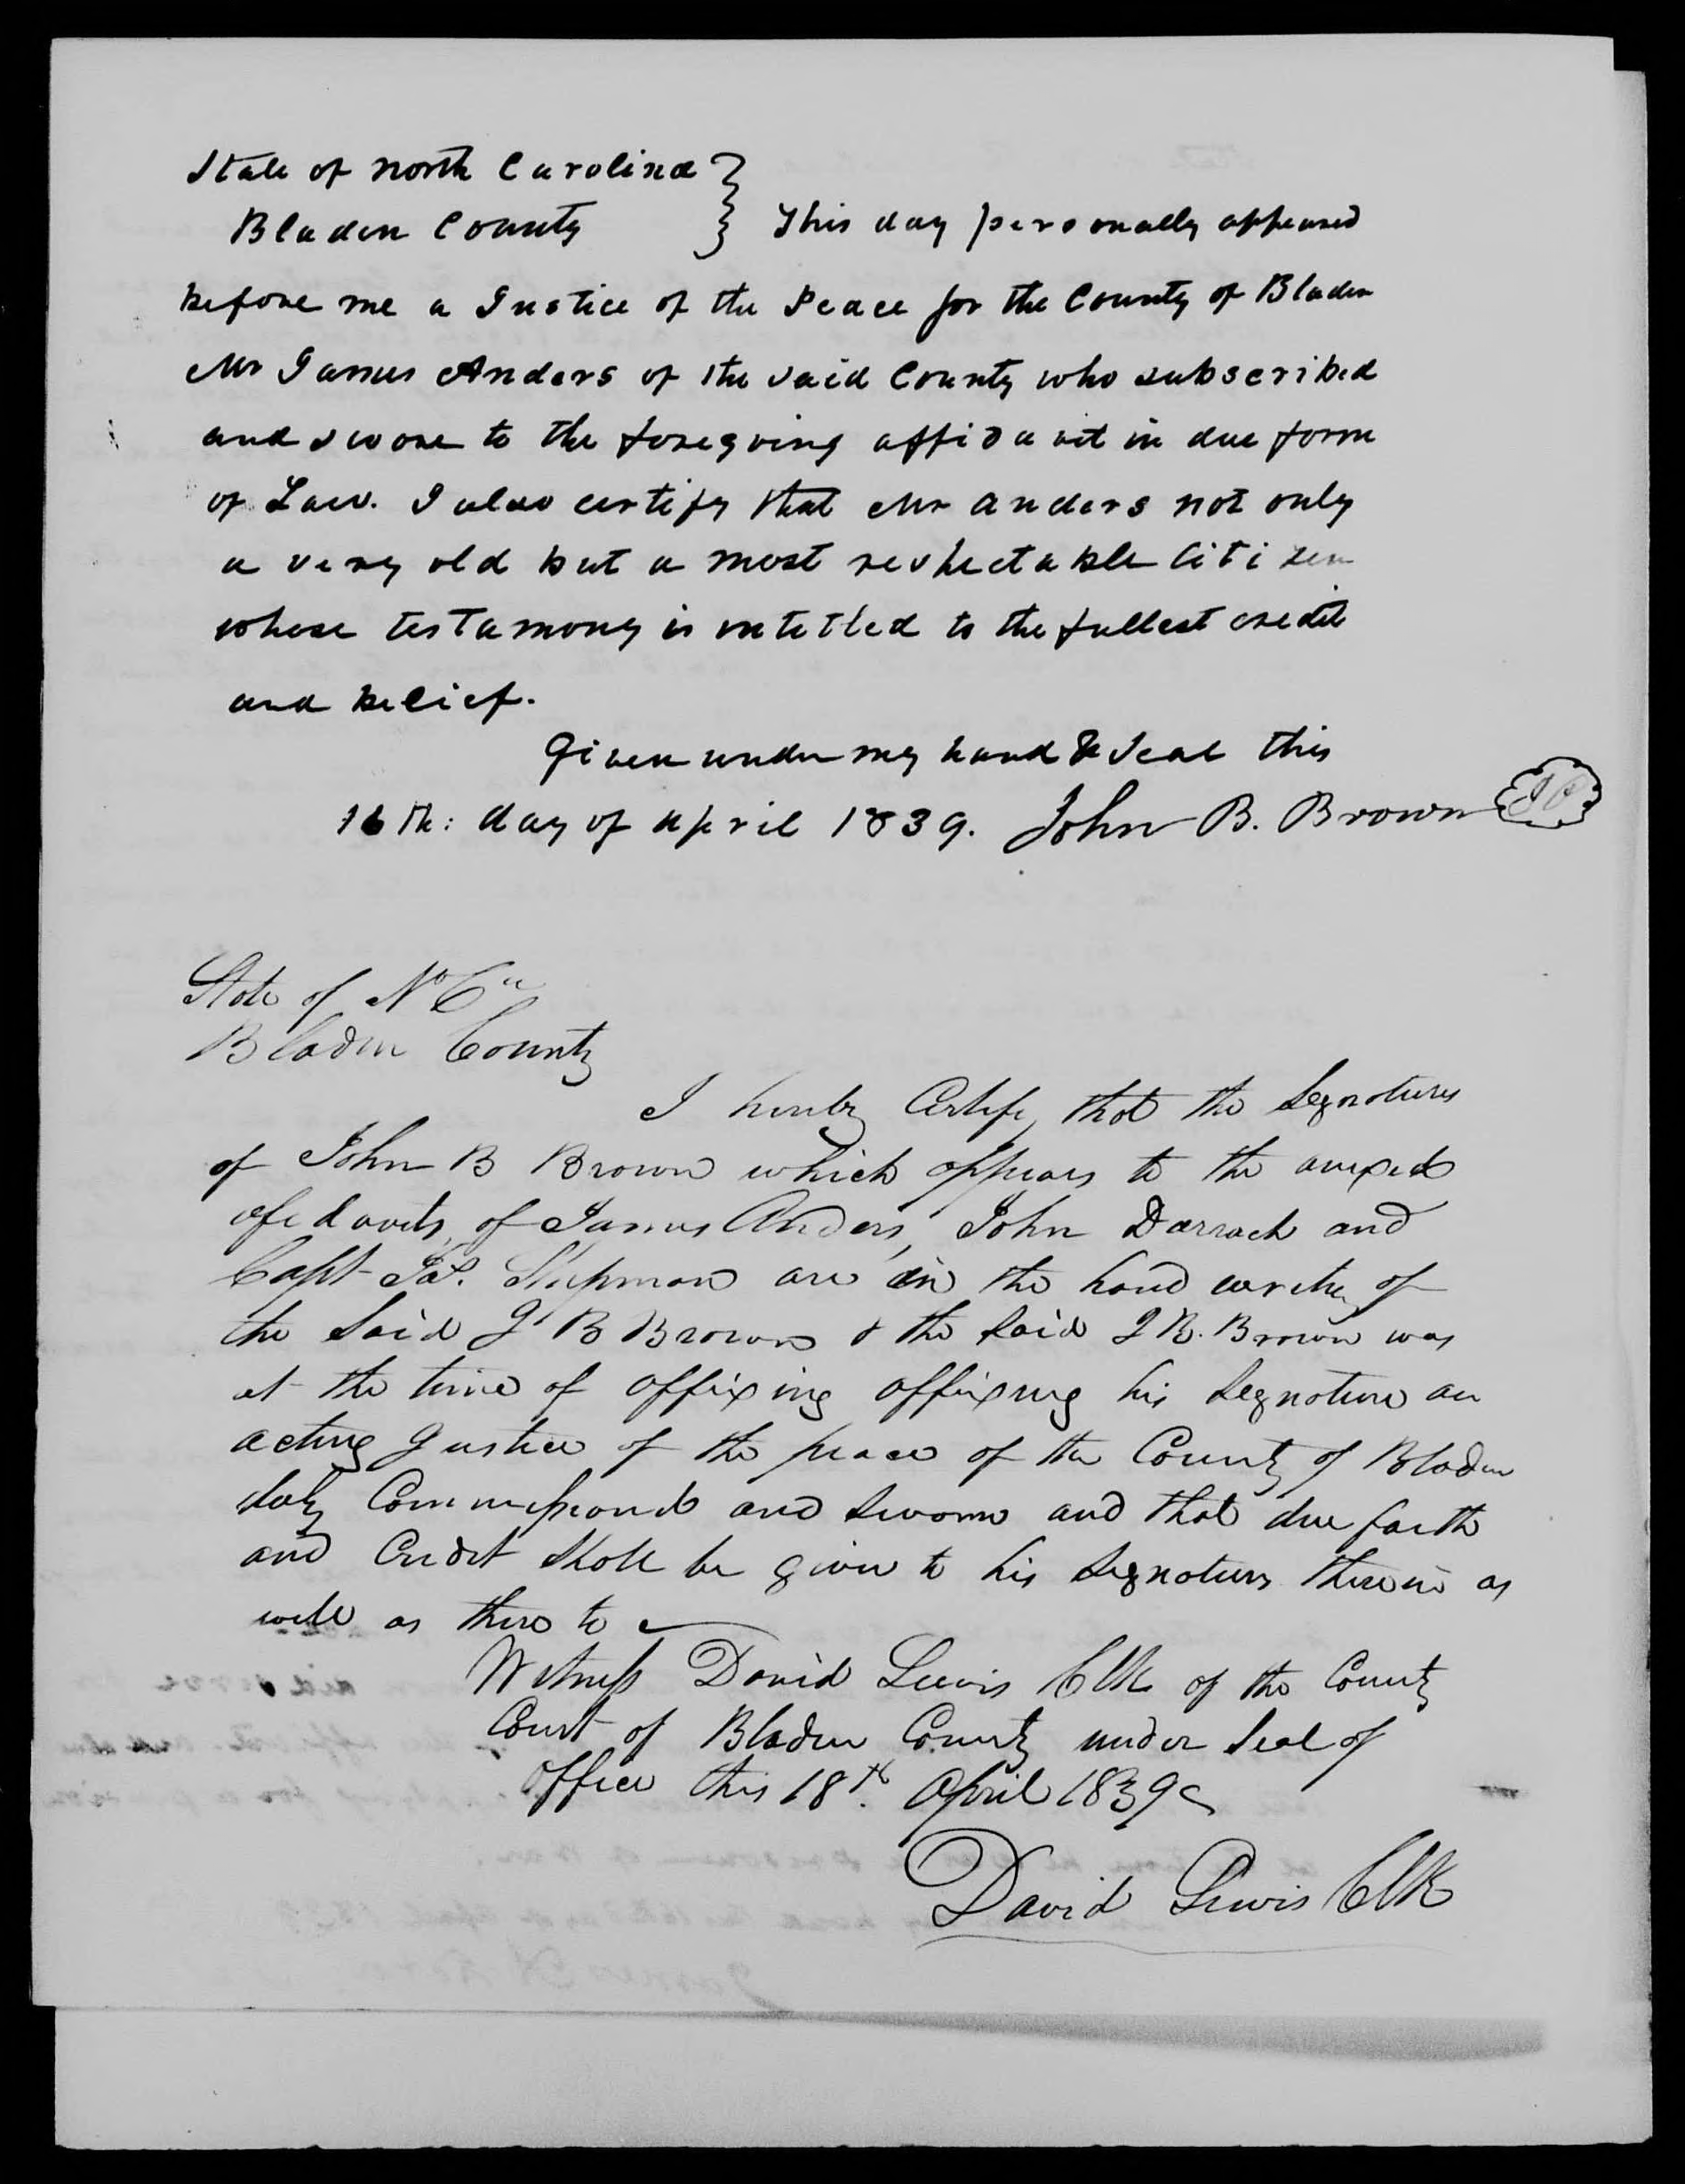 State of North Carolina }
Bladen County } This day personally appeared
before me a Justice of the Peace for the County of Bladen
Mr James Anders of the said County who subscribed
and swore to the foregoing affidavit in due form
of Law. I also certify that Mr Anders not only
a very old but a most respectable Citizen
whose testamony is intitled to the fullest credit
and belief.
Given under my hand & Seal this
16th: day of April 1839. John B. Brown
State of No Ca
Bladen County
I hereby Certify, that the Segnatures
of John B Brown which appears to the anexed
afedavits, of James Anders, John Darrach and
Capt Jas. Shipman are in the hand writing of
the Said J B Brown & the Said J B. Brown was
at the time of affixing affixing his Segnature an
acting Justice of the peace of the County of Bladen
duly Commissioned and Sworn and that due faith
and Credit Shall be given to his Segnature therein as
well as there to
Witness David Lewis Clk of the County
Court of Bladen County under Seal of
office this 18th. April 1839
David Lewis Clk